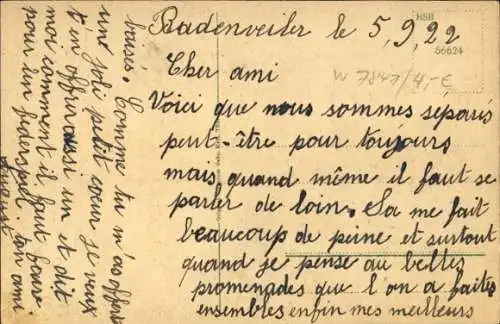 Badenweiler le 5,9,22
HSB
56624
W 7847/4,-€
Cher ami
Voici que nous sommes separés
peut-être pour toujours
mais quand même il faut se
parler de loin. Sa me fait
beaucoups de peine et surtout
quand je pense au belles
promenades que l'on a faites
ensembles enfin mes meilleurs
baisés. Comme tu m'as offert
une joli petit coeur je veux
t'en offrir aussi un et dit
moi comment il faut
pour un ton ami
August